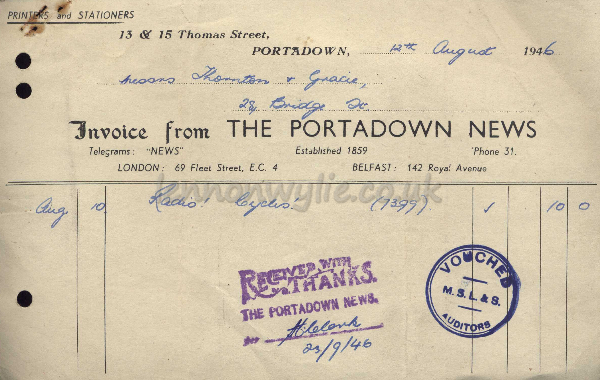 PRINTERS and STATIONERS
13 & 15 Thomas Street,
PORTADOWN, 12th August 1946
Messrs Thornton & Gracie,
28, Bridge St
Invoice from THE PORTADOWN NEWS
Telegrams: "NEWS" Established 1859 'Phone 31.
LONDON: 69 Fleet Street, E.C. 4 BELFAST: 142 Royal Avenue
lennonwylie.co.uk
Aug 10 Radio! Cycles! (7399) 1 10 0
RECEIVED WITH
THANKS.
THE PORTADOWN NEWS.
23/9/46
VOUCHED
M. S. L. & S.
AUDITORS